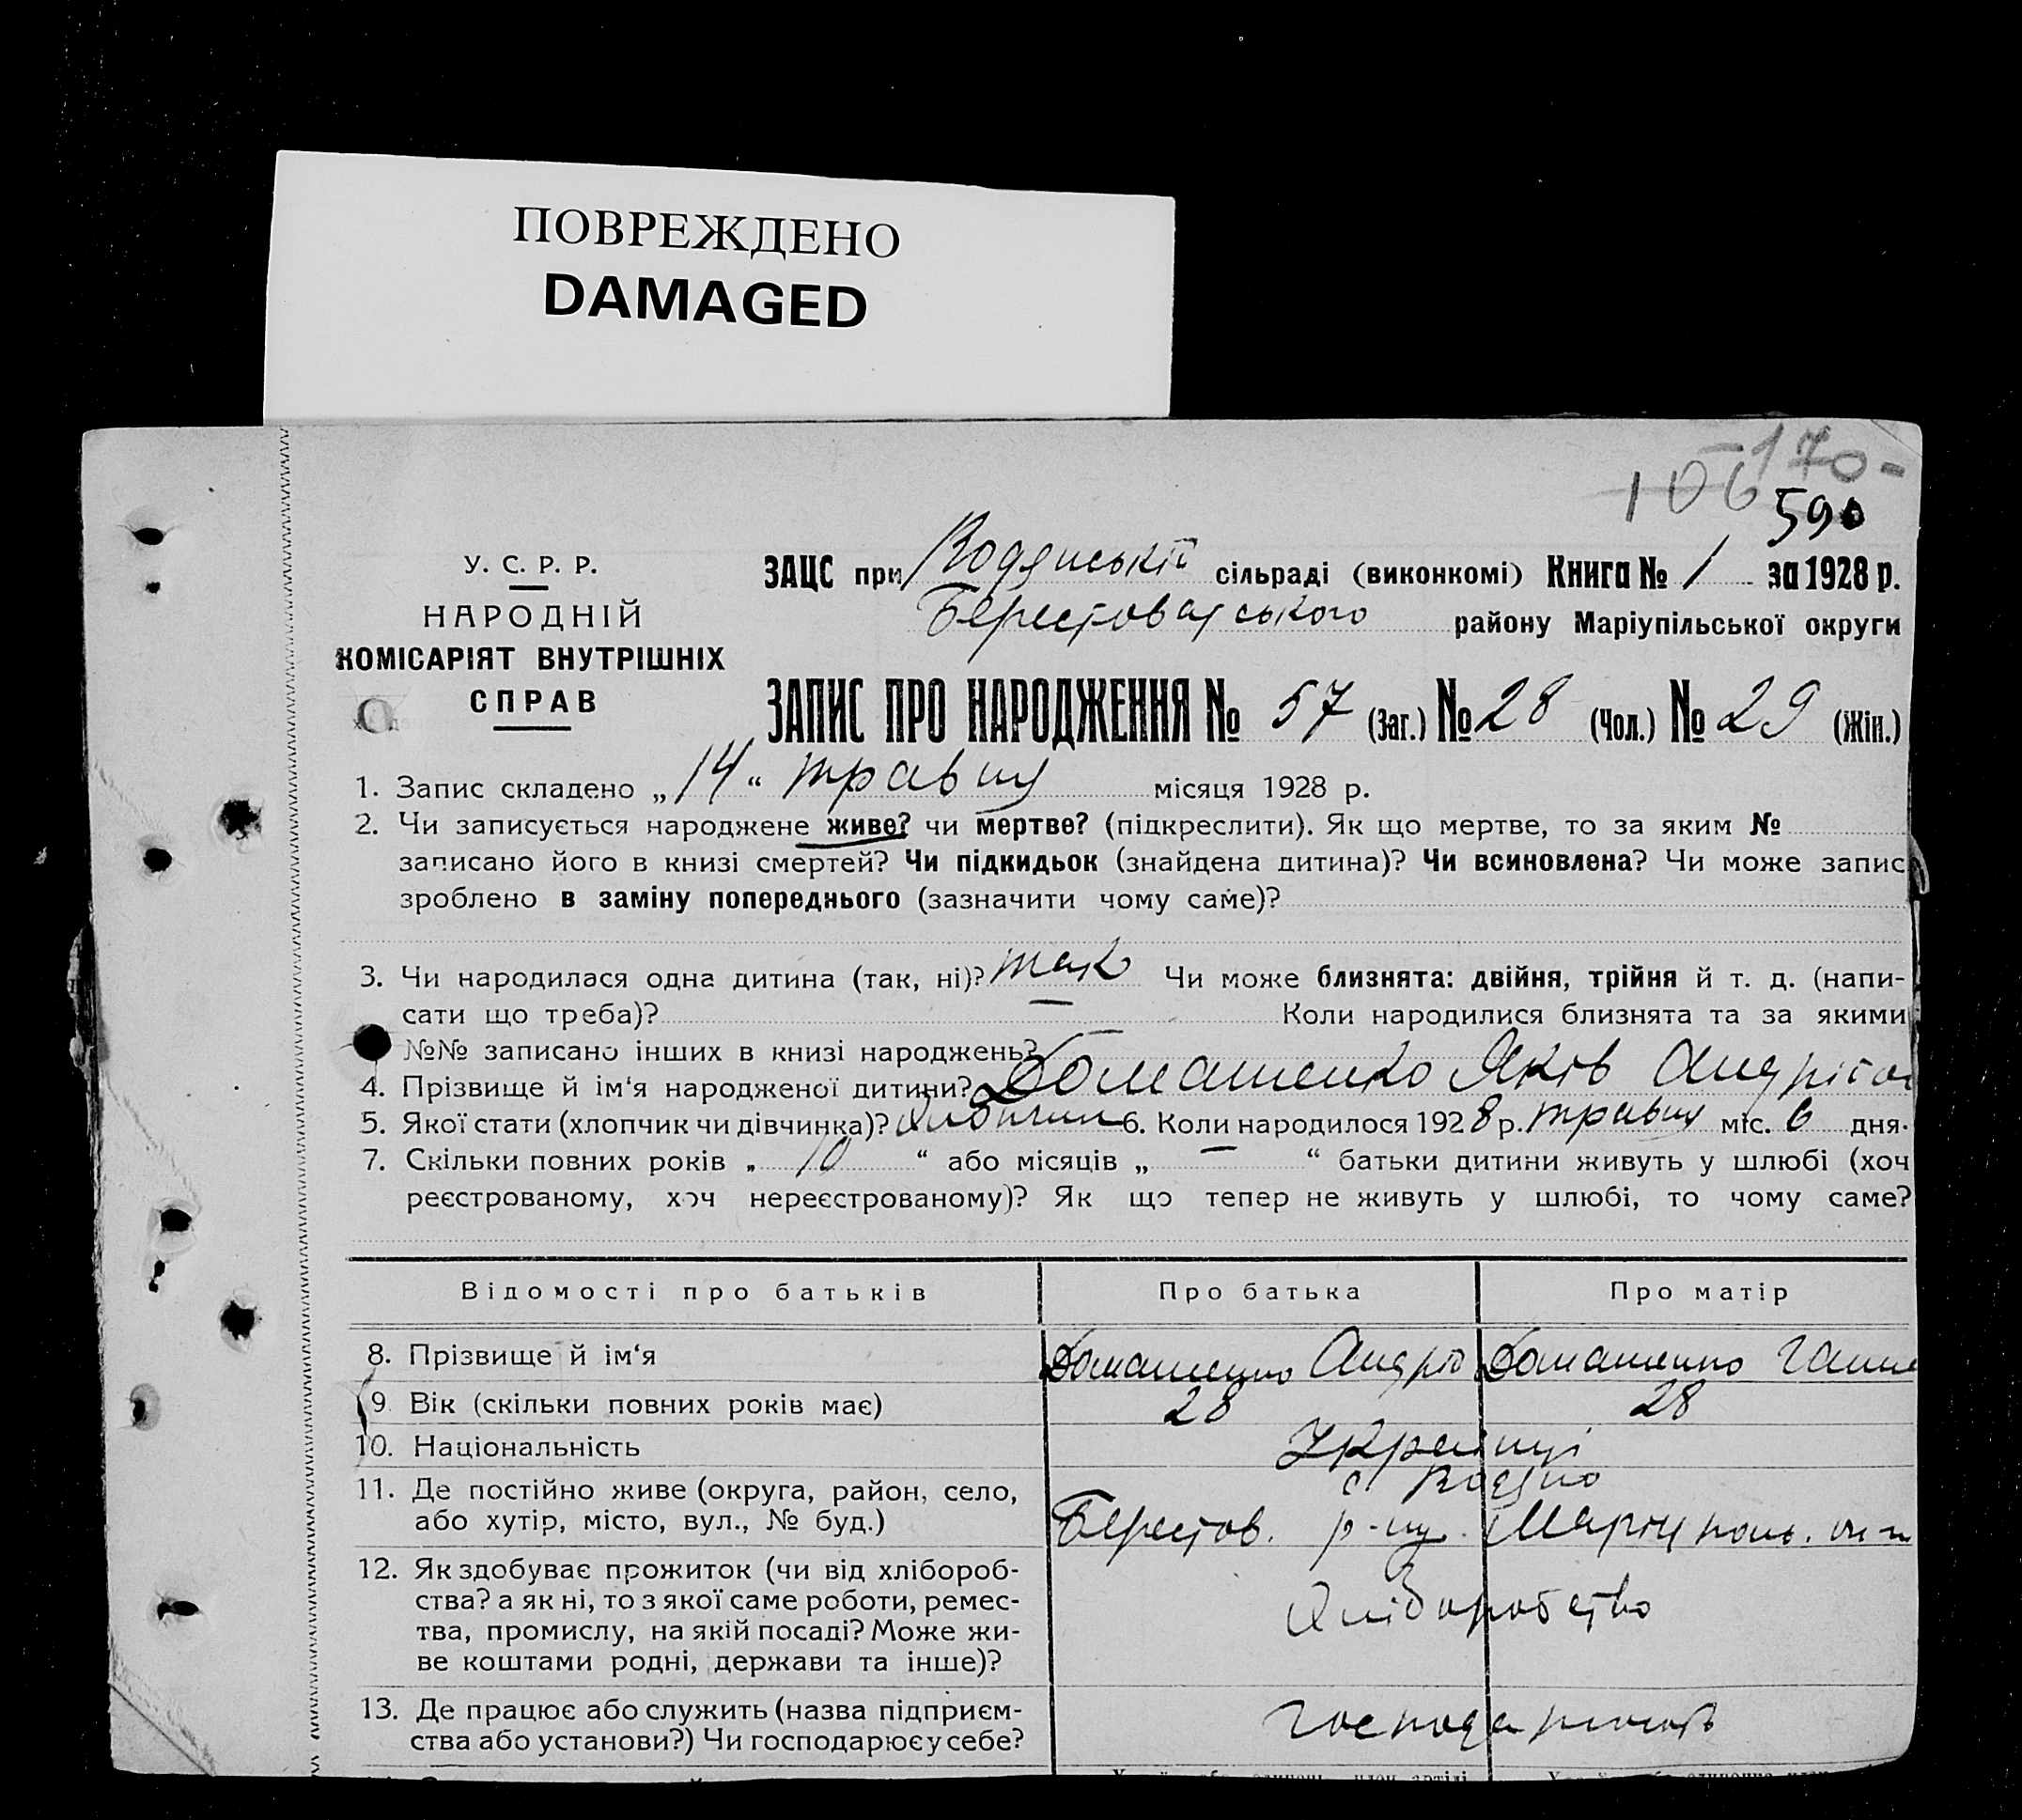 ПОВРЕЖДЕНО
DAMAGED
170-
106
590
У. С. Р. Р.
НАРОДНІЙ
КОМІСАРІЯТ ВНУТРІШНІХ
СПРАВ
ЗАЦС при Водянській сільраді (виконкомі) Книга № 1 за 1928 р.
Берестоватського району Маріупільської округи
ЗАПИС ПРО НАРОДЖЕННЯ № 57 (Заг.) № 28 (Чол.) № 29 (Жін.)
1. Запис складено „14“ травня місяця 1928 р.
2. Чи записується народжене живе? чи мертве? (підкреслити). Як що мертве, то за яким №
записано його в книзі смертей? Чи підкидьок (знайдена дитина)? Чи всиновлена? Чи може запис
зроблено в заміну попереднього (зазначити чому саме)?
3. Чи народилася одна дитина (так, ні)? так Чи може близнята: двійня, трійня й т. д. (напи-
сати що треба)? — Коли народилися близнята та за якими
№№ записано інших в книзі народжень?
4. Прізвище й ім‘я народженої дитини? Домашенко Яків
5. Якої стати (хлопчик чи дівчинка)? Хлопчик 6. Коли народилося 1928 р. травня міс. 6 дня.
7. Скільки повних років „ 10 “ або місяців „ — “ батьки дитини живуть у шлюбі (хоч
реєстрованому, хоч нереєстрованому)? Як що тепер не живуть у шлюбі, то чому саме?
Відомості про батьків Про батька Про матір
8. Прізвище й ім‘я Домашенко Андрій Домашенко Ганна
9. Вік (скільки повних років має) 28 28
10. Національність Українці
11. Де постійно живе (округа, район, село, с. Водяно
або хутір, місто, вул., № буд.) Берестов. р-ну. Маріуполь.
12. Як здобуває прожиток (чи від хлібороб-
ства? а як ні, то з якої саме роботи, ремес- Хліборобство
тва, промислу, на якій посаді? Може жи-
ве коштами родні, держави та інше)?
13. Де працює або служить (назва підприєм-
ства або установи?) Чи господарює у себе?